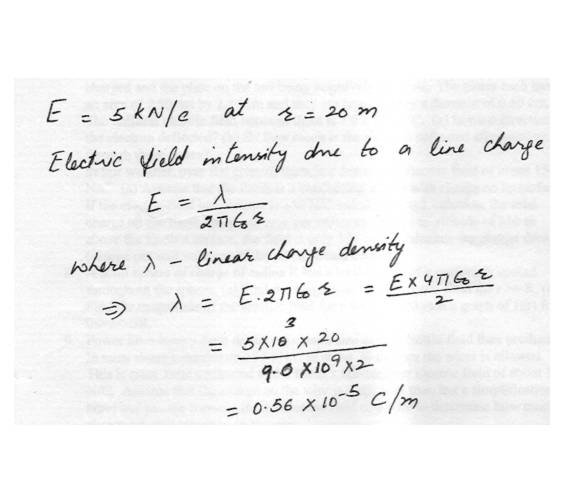 E = 5 kN/c at r = 20 m
Electric field intensity due to a line charge
E = λ / 2πε₀r
where λ - linear charge density
⇒ λ = E·2πε₀r = E×4πε₀r / 2
= 5×10³ × 20 / 9.0×10⁹×2
= 0.56 × 10⁻⁵ C/m